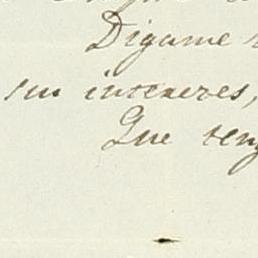 Digame
sus intereres,
Que teng